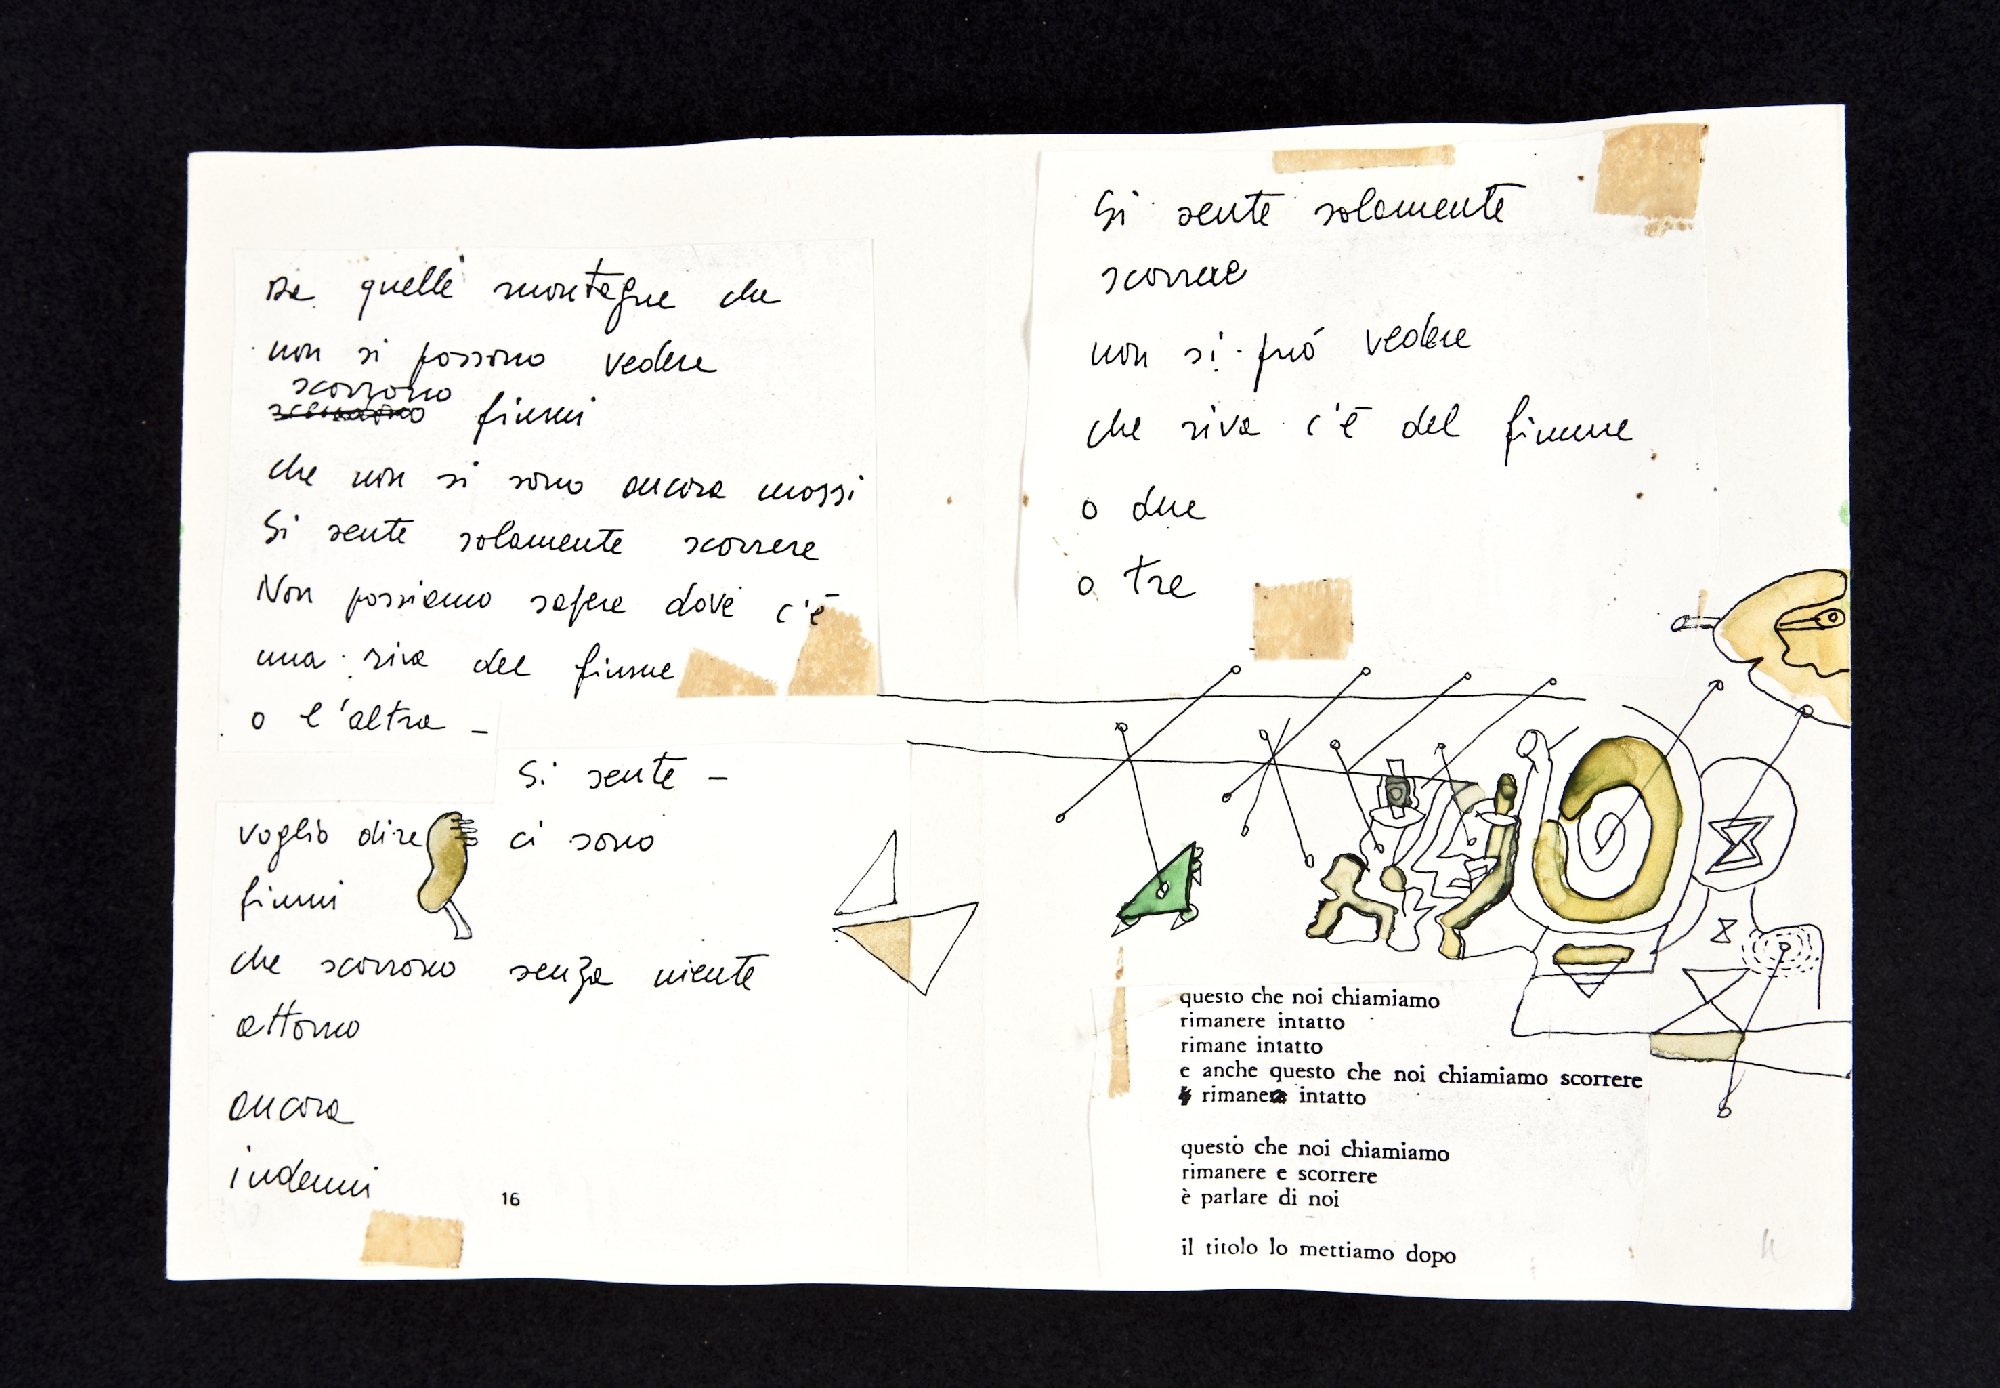 da quelle montagne che
non si possono vedere
scorrono
fiumi
che non si sono ancora mossi
Si sente solamente scorrere
Non possiamo sapere dove c'è
una riva del fiume
o l'altra –
Si sente –
voglio dire ci sono
fiumi
che scorrono senza niente
attorno
ancora
indenni
16
Si sente solamente
scorrere
non si può vedere
che riva c'è del fiume
o due
o tre
questo che noi chiamiamo
rimanere intatto
rimane intatto
e anche questo che noi chiamiamo scorrere
rimane intatto
questo che noi chiamiamo
rimanere e scorrere
è parlare di noi
il titolo lo mettiamo dopo